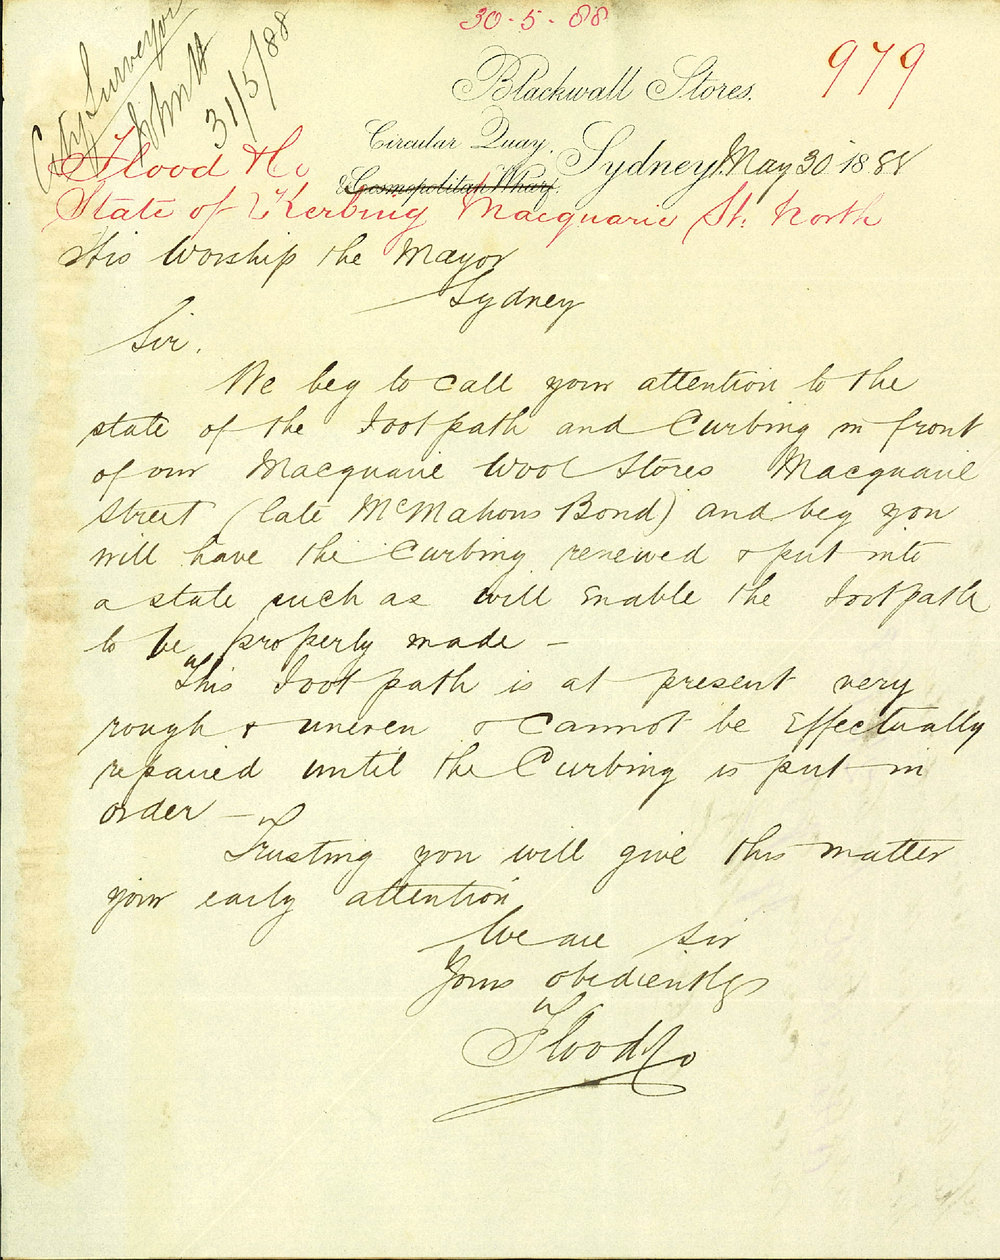 30-5-88
979
City Surveyor
31/5/88
Blackwall Stores.
Circular Quay,
& Cosmopolitan Wharf.
Sydney, May 30 1888
Flood & Co
State of Kerbing Macquarie St. North
His Worship the Mayor
Sydney
Sir.
We beg to call your attention to the
state of the Footpath and Curbing in front
of our Macquarie Wool Stores Macquarie
Street (late McMahons Bond) and beg you
will have the Curbing renewed & put into
a state such as will Enable the Footpath
to be properly made –
This Footpath is at present very
rough & uneven & cannot be Effectually
repaired until the Curbing is put in
order –
Trusting you will give this matter
your early attention
We are Sir
Yours obediently
Flood & Co